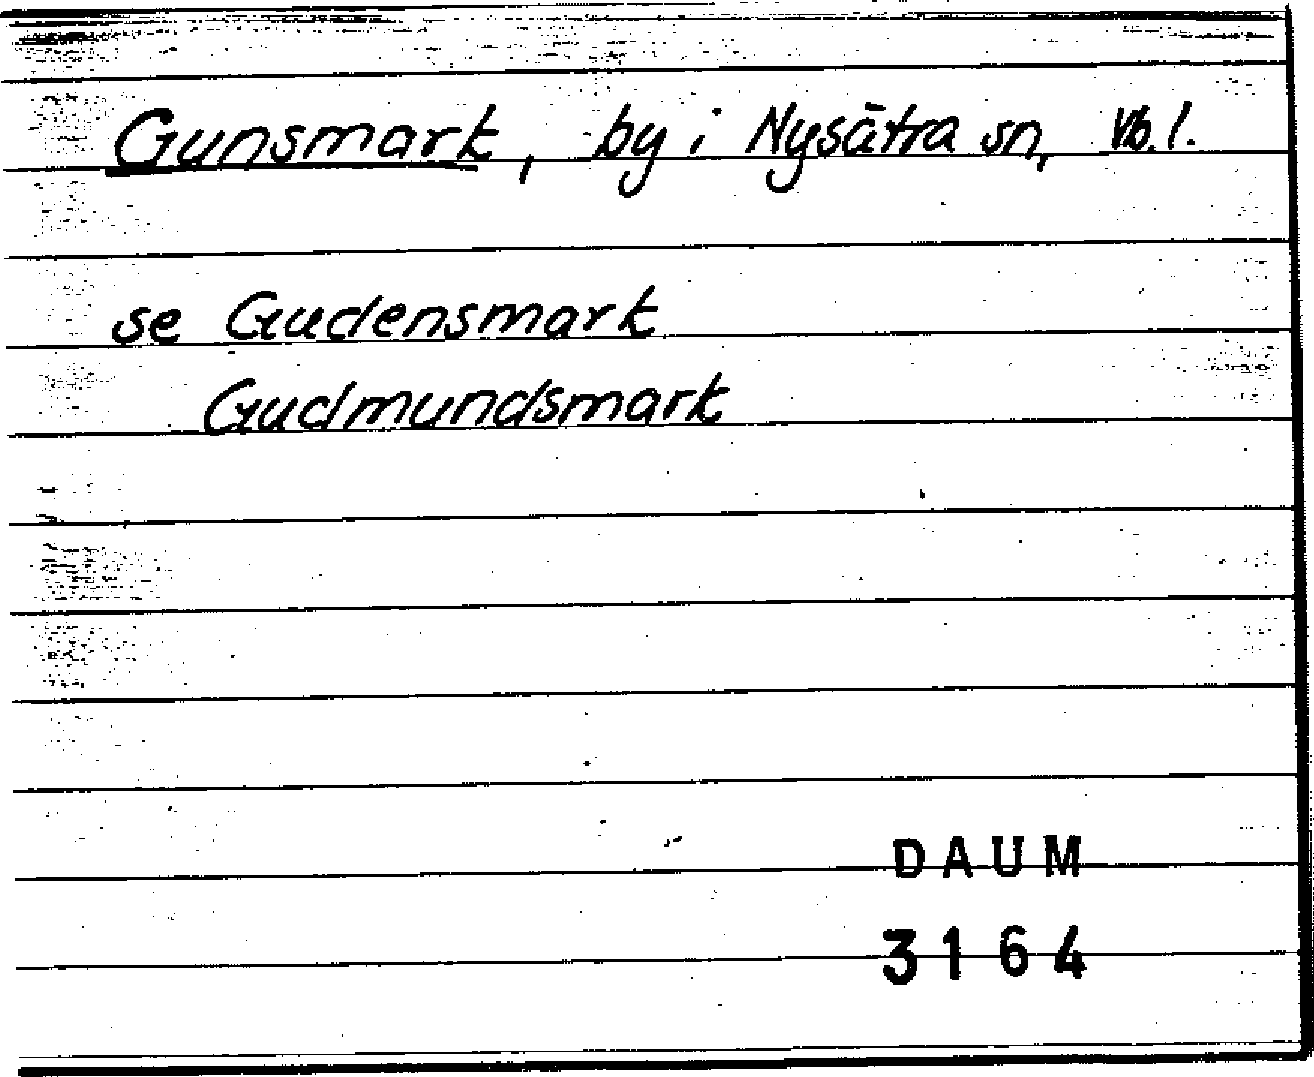 Gunsmark, by i Nysätra sn, Vb. l.
se Gudensmark
Gudmundsmark
DAUM
3164